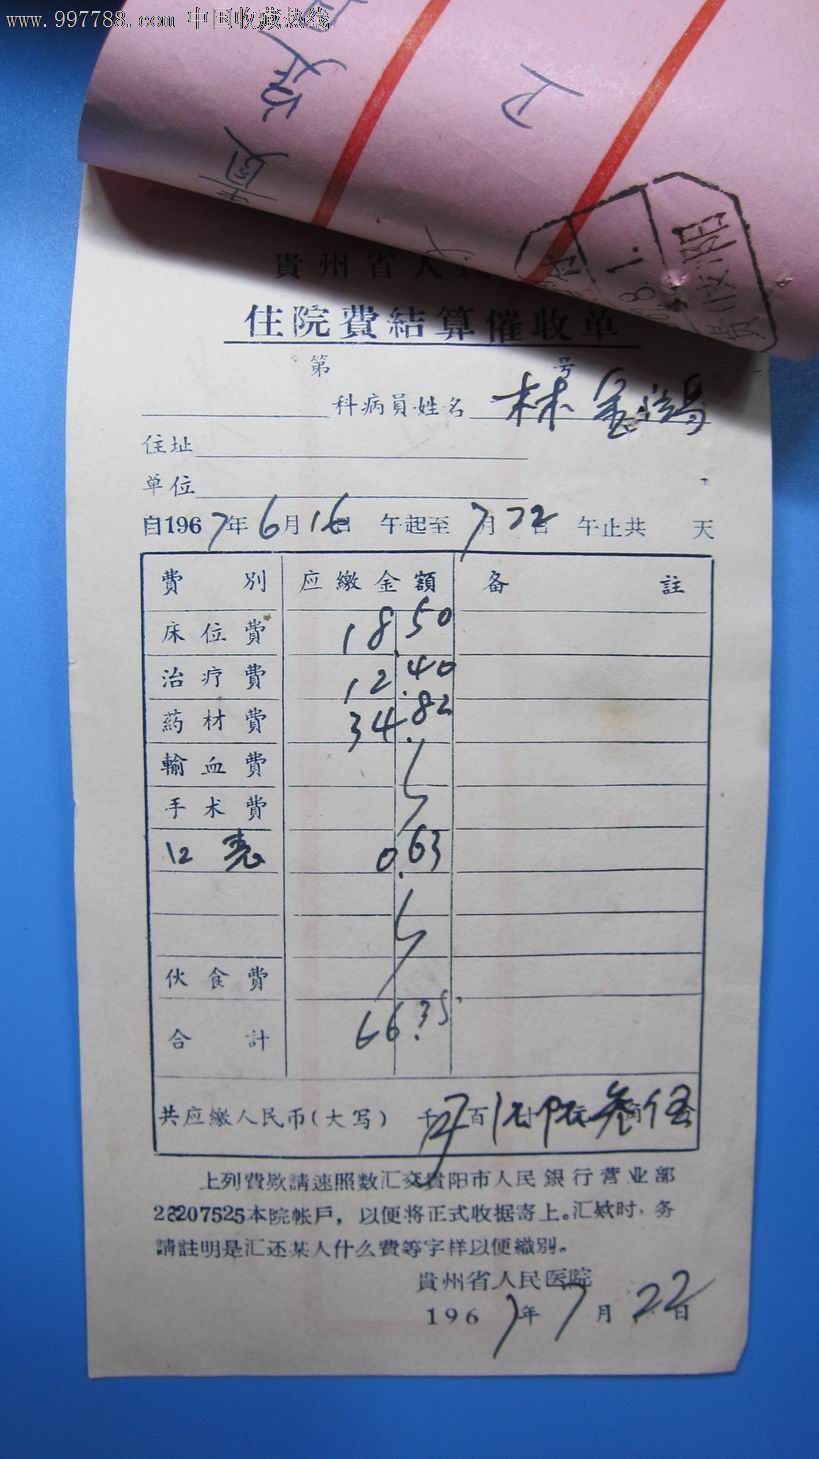 www.997788.com 中国收藏热线
貴州省人
住院費結算催收单
第 号
科病員姓名 林
住址
单位
自1967年6月16日 午起至7月22日 午止共 天
費別 应繳金額 备註
床位費 18.50
治疗費 12.40
药材費 34.82
輸血費
手术費
口表 0.63
伙食費
合計 66.35
共应繳人民币(大写) 千 百 陆拾陆元叁角伍分
上列費欵請速照数汇交貴阳市人民銀行营业部
28207525本院帐戶，以便将正式收据寄上。汇欵时，务
請註明是汇还某人什么費等字样以便織别。
貴州省人民医院
1967年7月22日